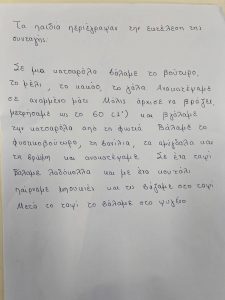 Τα παιδιά περιέγραψαν την εκτέλεση της
συνταγής.
Σε μια κατσαρόλα βάλαμε το βούτυρο,
το μέλι, το κακάο, το γάλα Ανακατέψαμε
σε αναμμένο μάτι Μόλις άρχισε να βράζει,
μετρήσαμε ως το 60 (1') και βγάλαμε
την κατσαρόλα από τη φωτιά Βάλαμε το
φυστικοβούτυρο, τη βανίλια, τα αμύγδαλα και
τη βρώμη και ανακατέψαμε. Σε ένα ταψί
βάλαμε λαδόκολλα και με ένα κουτάλι
παίρναμε μπουκιές και τις βάζαμε στο ταψί
Μετά το ταψί το βάλαμε στο ψυγείο